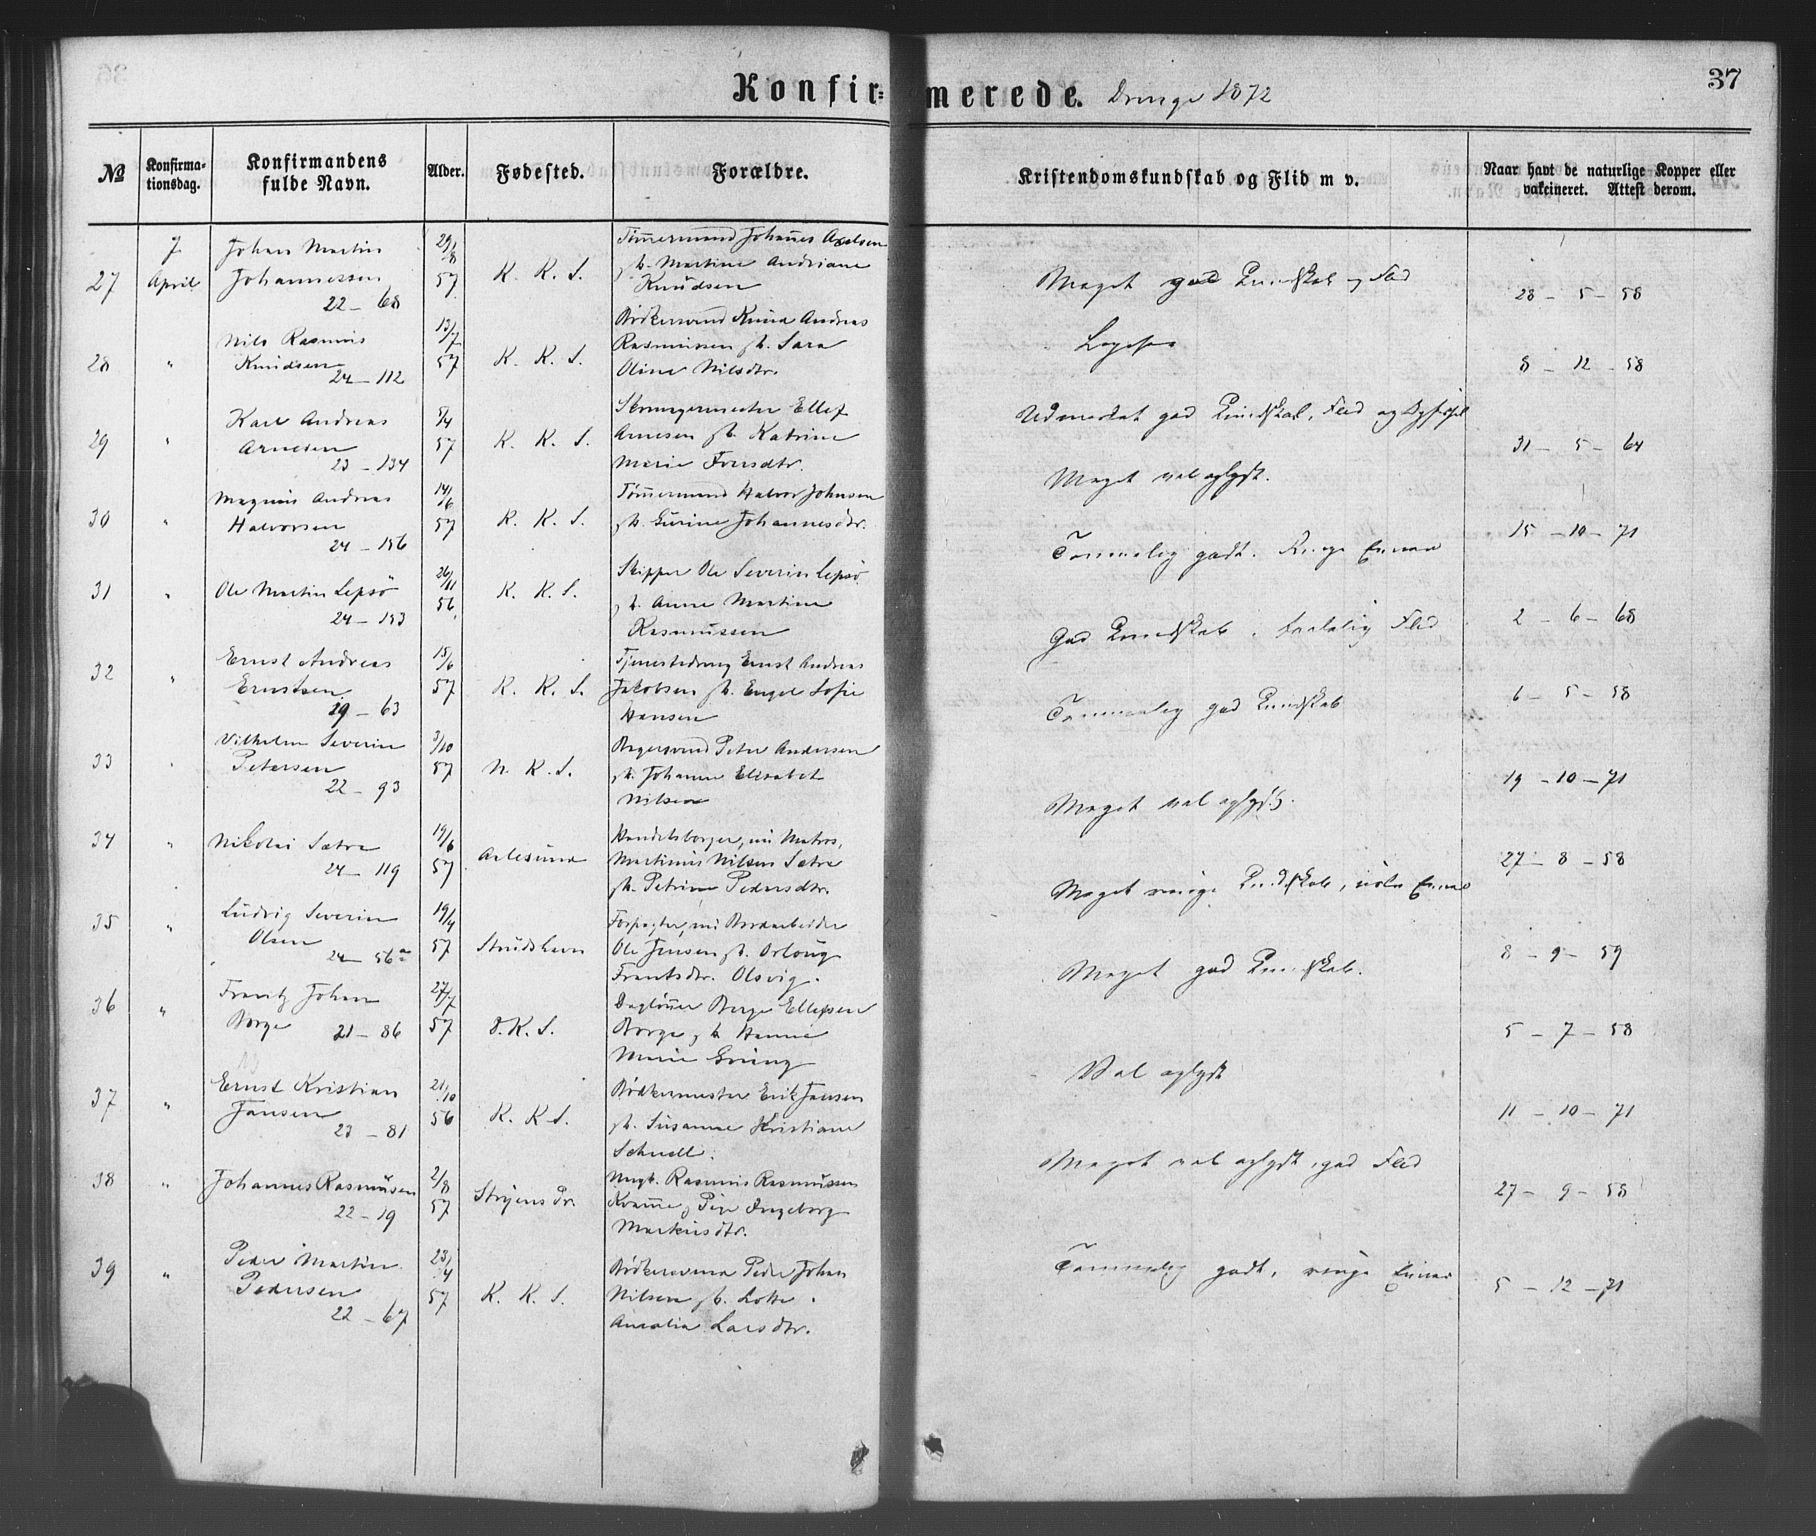 Konfir=merede. Drenge 1872
37
№
Konfirma-
tionsdag.
Konfirmandens
fulde Navn.
Alder.
Fødested.
Forældre.
Kristendomskundskab og Flid m v.
Naar havt de naturlige Kopper eller
vakcineret. Attest derom.
27
7
April
Johan Martin
Johannessen
22 - 68
29/8
57
K. K. S.
Tömmermand Johannes Axelsen
h. Martine Andriane
Knudsen
Meget god Kundskab og Flid
28 - 5 - 58
28
"
Nils Rasmus
Knudsen
24 - 112
13/7
57
K. K. S.
Bödkersvend Knud Andreas
Rasmussen h. Sara
Oline Nilsdtr.
Ligesaa
8 - 12 - 58
29
"
Karl Andreas
Arnesen
23 - 134
5/4
57
K. K. S.
Ellef
Arnesen h. Katrine
Marie
Udmerket god Kundskab, Flid og Opførsel
31 - 5 - 64
30
"
Magnus Andreas
Halvorsen
24 - 156
14/6
57
K. K. S.
Tömmermand Halvor Johnsen
h. Gurine Johannesdtr.
Meget vel oplyst.
15 - 10 - 71
31
"
Ole Martin Lepsö
24 - 153
26/11
56
K. K. S.
Skipper Ole Severin Lepsö
h. Anne Martine
Rasmussen
Temmelig godt. Ringe Evner
2 - 6 - 68
32
"
Ernst Andreas
Ernstsen
29 - 63
15/6
57
K. K. S.
Tjenestedreng Ernst Andreas
Jakobsen h. Engel Sofie
Hansen
God Kundskab, Flid
6 - 5 - 58
33
"
Vilhelm Severin
Petersen
22 - 93
3/10
57
N. K. S.
Bagersvend Peter Andersen
h. Johanne Elisabet
Nilsen
Temmelig god Kundskab
19 - 10 - 71
34
"
Nikolai Sætre
24 - 119
19/6
57
Aalesund
Handelsborger, nu Matros,
Martinus Nilsen Sætre
h. Petrine Pedersdtr.
Meget vel oplyst.
27 - 8 - 58
35
"
Ludvig Severin
Olsen
24 - 56a
19/4
57
Strudshavn
Forpagter, nu Bordarbeider
Ole Jensen h.
Frantsdtr. Olsvig.
Meget ringe Kundskab, Evner
8 - 9 - 59
36
"
Frantz Johan
Borge 21 - 86
27/7
57
D. K. S.
Daglönner Borge Ellefsen
Borge h. Hanne
Marie Gröng
Meget god Kundskab.
5 - 7 - 58
37
"
Ernst Kristian
Jansen
23 - 81
21/10
56
K. K. S.
Bödkermester Erik Jansen
h. Susanne Kristiane
Schnell.
Vel oplyst
11 - 10 - 71
38
"
Johannes Rasmussen
22 - 19
2/8
57
Stryens Pr.
Ungk. Rasmus Rasmussen
Kvamme, Pige Ingeborg
Markusdtr.
Meget vel oplyst, god Flid
27 - 9 - 58
39
"
Peder Martin
Pedersen
22 - 67
23/4
57
K. K. S.
Bödkersvend Peder Johan
Nilsen h. Lotte
Amalia Larsdtr.
Temmelig godt, ringe Evner
5 - 12 - 71